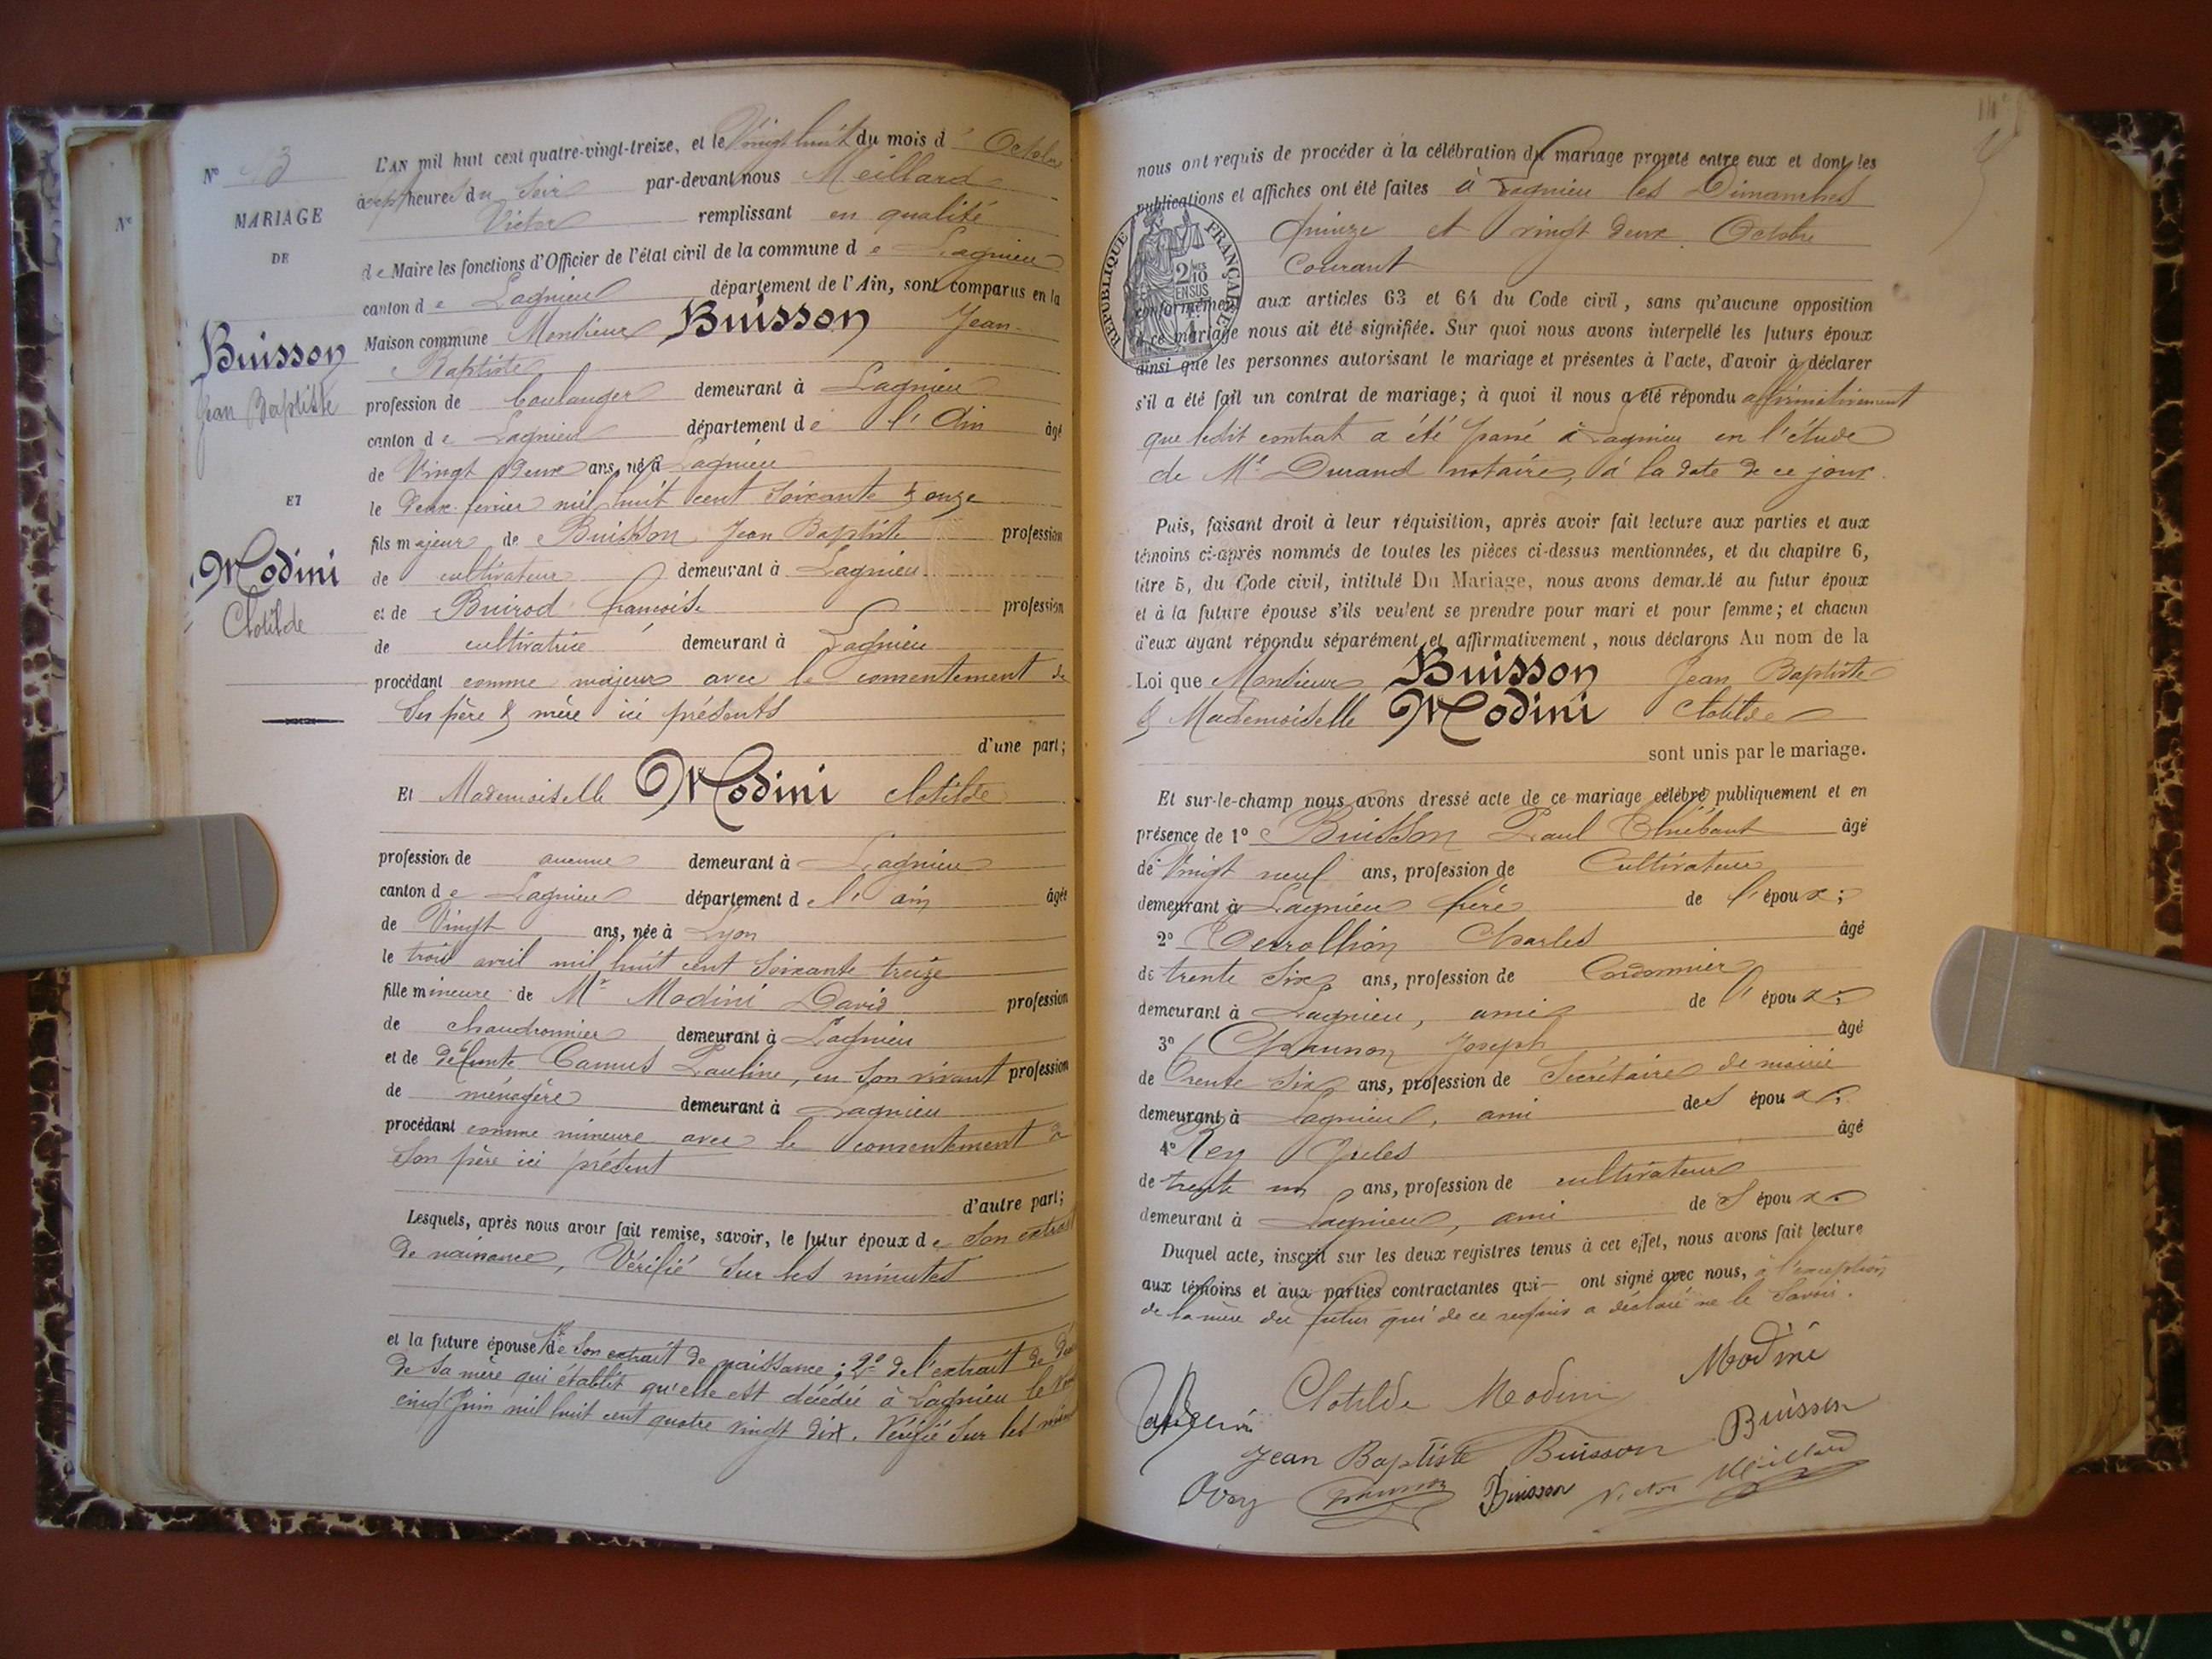 Nº
Nº 13
MARIAGE
DE
Buisson
Jean Baptiste
ET
Modini
Clotilde
L'AN mil huit cent quatre-vingt-treize, et le Vingt huit du mois d' Octobre
à sept heures du Soir par-devant nous Meillard
Victor remplissant en qualité
de Maire les fonctions d'Officier de l'état civil de la commune de Lagnieu
canton de Lagnieu département de l'Ain, sont comparus en la
Maison commune Monsieur Buisson Jean-
Baptiste
profession de boulanger demeurant à Lagnieu
canton de Lagnieu département de l'Ain âgé
de Vingt deux ans, né à Lagnieu
le deux février mil huit cent soixante & onze
fils majeur de Buisson Jean Baptiste profession
de cultivateur demeurant à Lagnieu
et de Buirod françoise profession
de cultivatrice demeurant à Lagnieu
procédant comme majeur avec le consentement de
Ses père & mère ici présents
d'une part;
Et Mademoiselle Modini Clotilde
profession de aucune demeurant à Lagnieu
canton de Lagnieu département de l'ain âgée
de Vingt ans, née à Lyon
le trois avril mil huit cent soixante treize
fille mineure de Mr Modini David profession
de chaudronnier demeurant à Lagnieu
et de défunte Camus Pauline, en son vivant profession
de ménagère demeurant à Lagnieu
procédant comme mineure avec le consentement de
Son père ici présent
d'autre part;
Lesquels, après nous avoir fait remise, savoir, le futur époux de Son extrait
de naissance, Vérifié sur les minutes
et la future épouse 1º de Son extrait de naissance; 2º de l'extrait de
de sa mère qui établit qu'elle est décédée à Lagnieu le
cinq Juin mil huit cent quatre vingt dix. Vérifié sur les
nous ont requis de procéder à la célébration du mariage projeté entre eux et dont les
publications et affiches ont été faites à Lagnieu les Dimanches
Quinze et vingt deux Octobre
Courant
RÉPUBLIQUE FRANÇAISE
2/10 EN SUS
conformément aux articles 63 et 64 du Code civil, sans qu'aucune opposition
à ce mariage nous ait été signifiée. Sur quoi nous avons interpellé les futurs époux
ainsi que les personnes autorisant le mariage et présentes à l'acte, d'avoir à déclarer
s'il a été fait un contrat de mariage; à quoi il nous a été répondu affirmativement
que ledit contrat a été passé à Lagnieu en l'étude
de Me Durand notaire, à la date de ce jour.
Puis, faisant droit à leur réquisition, après avoir fait lecture aux parties et aux
témoins ci-après nommés de toutes les pièces ci-dessus mentionnées, et du chapitre 6,
titre 5, du Code civil, intitulé Du Mariage, nous avons demandé au futur époux
et à la future épouse s'ils veulent se prendre pour mari et pour femme; et chacun
d'eux ayant répondu séparément et affirmativement, nous déclarons Au nom de la
Loi que Monsieur Buisson Jean Baptiste
& Mademoiselle Modini Clotilde
sont unis par le mariage.
Et sur-le-champ nous avons dressé acte de ce mariage célébré publiquement et en
présence de 1º Buisson Paul âgé
de Vingt neuf ans, profession de Cultivateur
demeurant à Lagnieu frère de l'époux;
2º Charles âgé
de trente six ans, profession de Cordonnier
demeurant à Lagnieu, ami de l'époux;
3º Chaunon Joseph âgé
de Trente Six ans, profession de Secrétaire de mairie
demeurant à Lagnieu, ami des époux;
4º Rey Jules âgé
de trente un ans, profession de cultivateur
demeurant à Lagnieu, ami des époux
Duquel acte, inscrit sur les deux registres tenus à cet effet, nous avons fait lecture
aux témoins et aux parties contractantes qui ont signé avec nous, à l'exception
de la mère du futur qui de ce requis a déclaré ne le Savoir.
Modini
Clotilde Modini
Buisson
Jean Baptiste Buisson
Buisson Victor Meillard